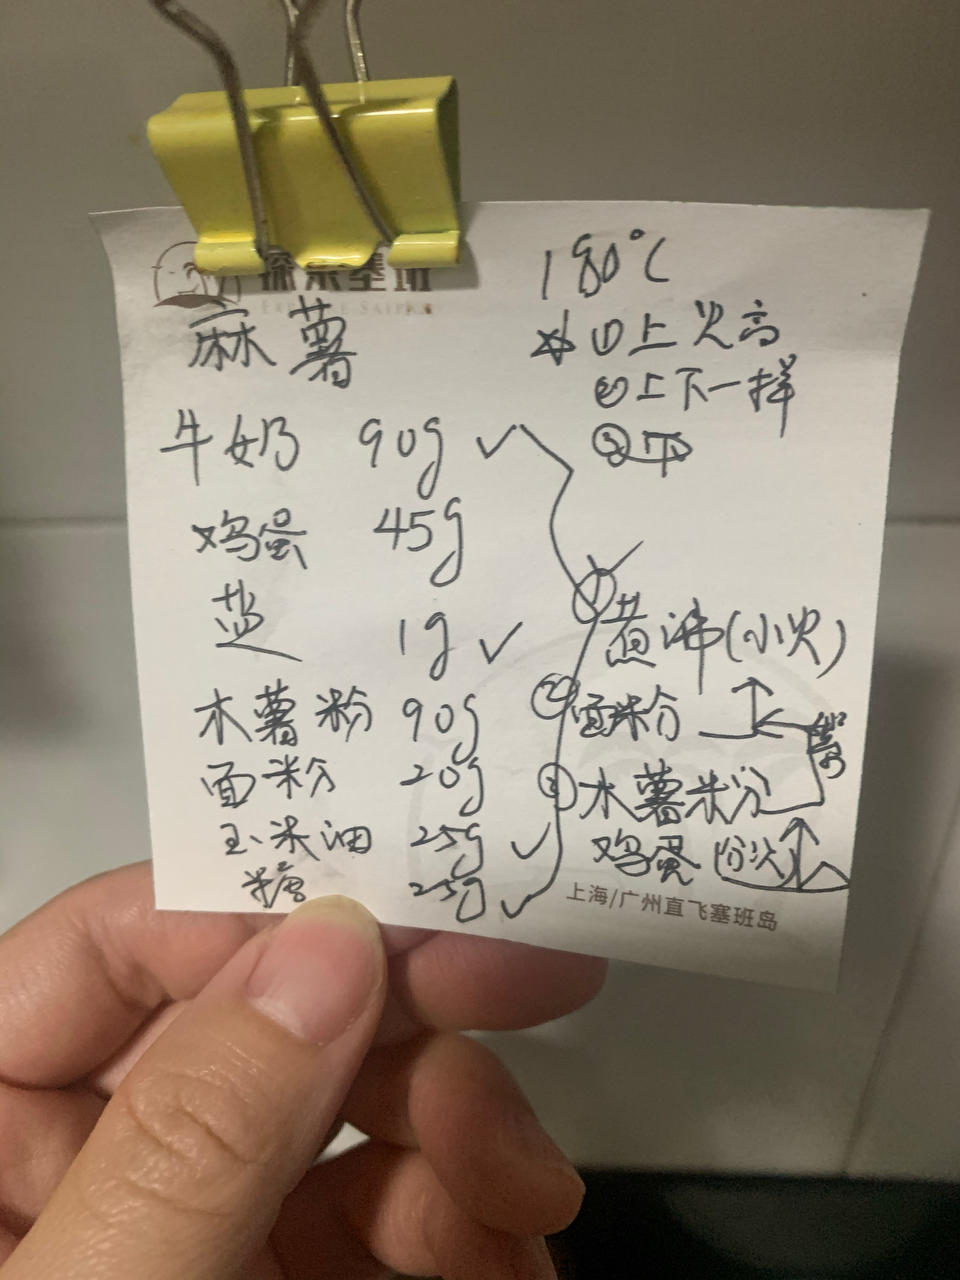 探索塞班
EXPLORE SAIPAN
麻薯
牛奶 90g ✓
鸡蛋 45g
盐 1g ✓
木薯粉 90g
面粉 20g
玉米油 25g ✓
糖 25g ✓
180℃
①上火高
②上下一样
③下
① 煮沸(小火)
② 面粉
③ 木薯粉
鸡蛋(分次)
上海/广州直飞塞班岛